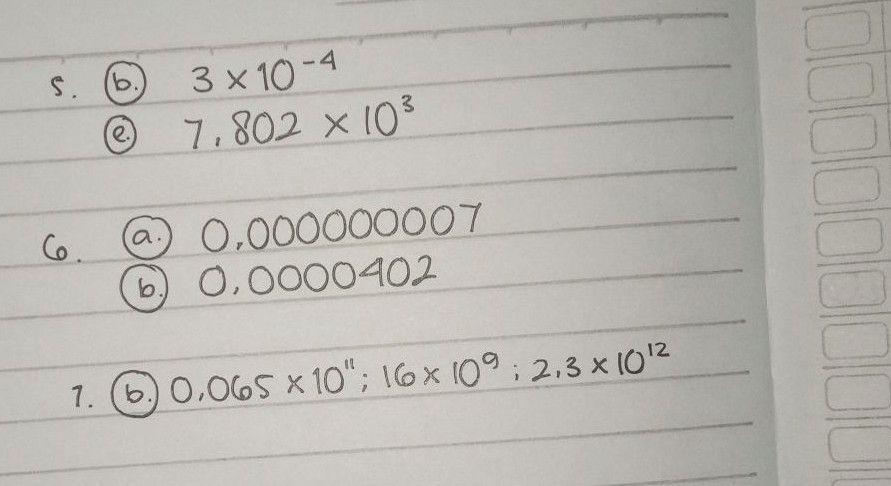 5. (b.) 3 × 10⁻⁴
(e.) 7,802 × 10³
6. (a.) 0,000000007
(b.) 0,0000402
7. (b.) 0,065 × 10¹¹; 16 × 10⁹; 2,3 × 10¹²